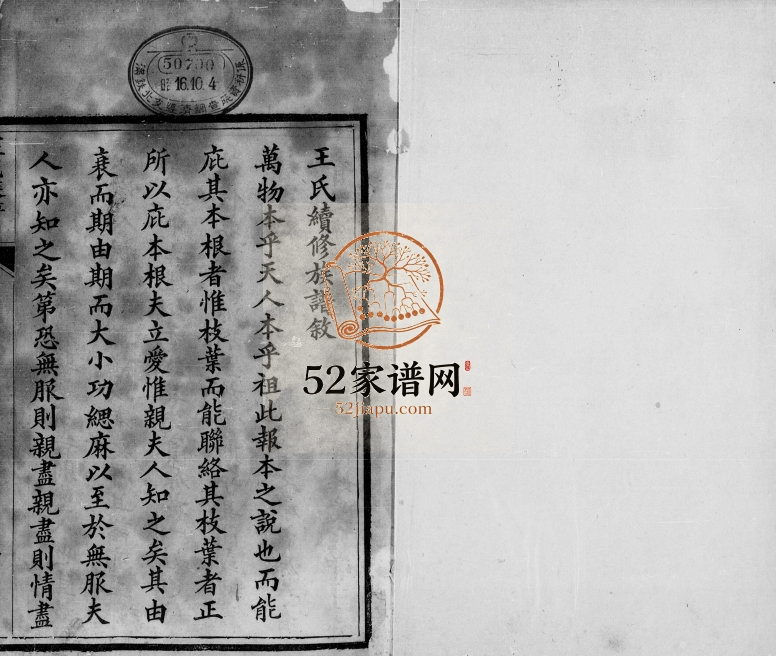 50700
昭 16.10.4
王氏續修族譜敘
萬物本乎天人本乎祖此報本之說也而能
庇其本根者惟枝葉而能聯絡其枝葉者正
所以庇本根夫立愛惟親夫人知之矣其由
衰而期由期而大小功緦麻以至於無服夫
人亦知之矣第恐無服則親盡親盡則情盡
52家谱网
52jiapu.com